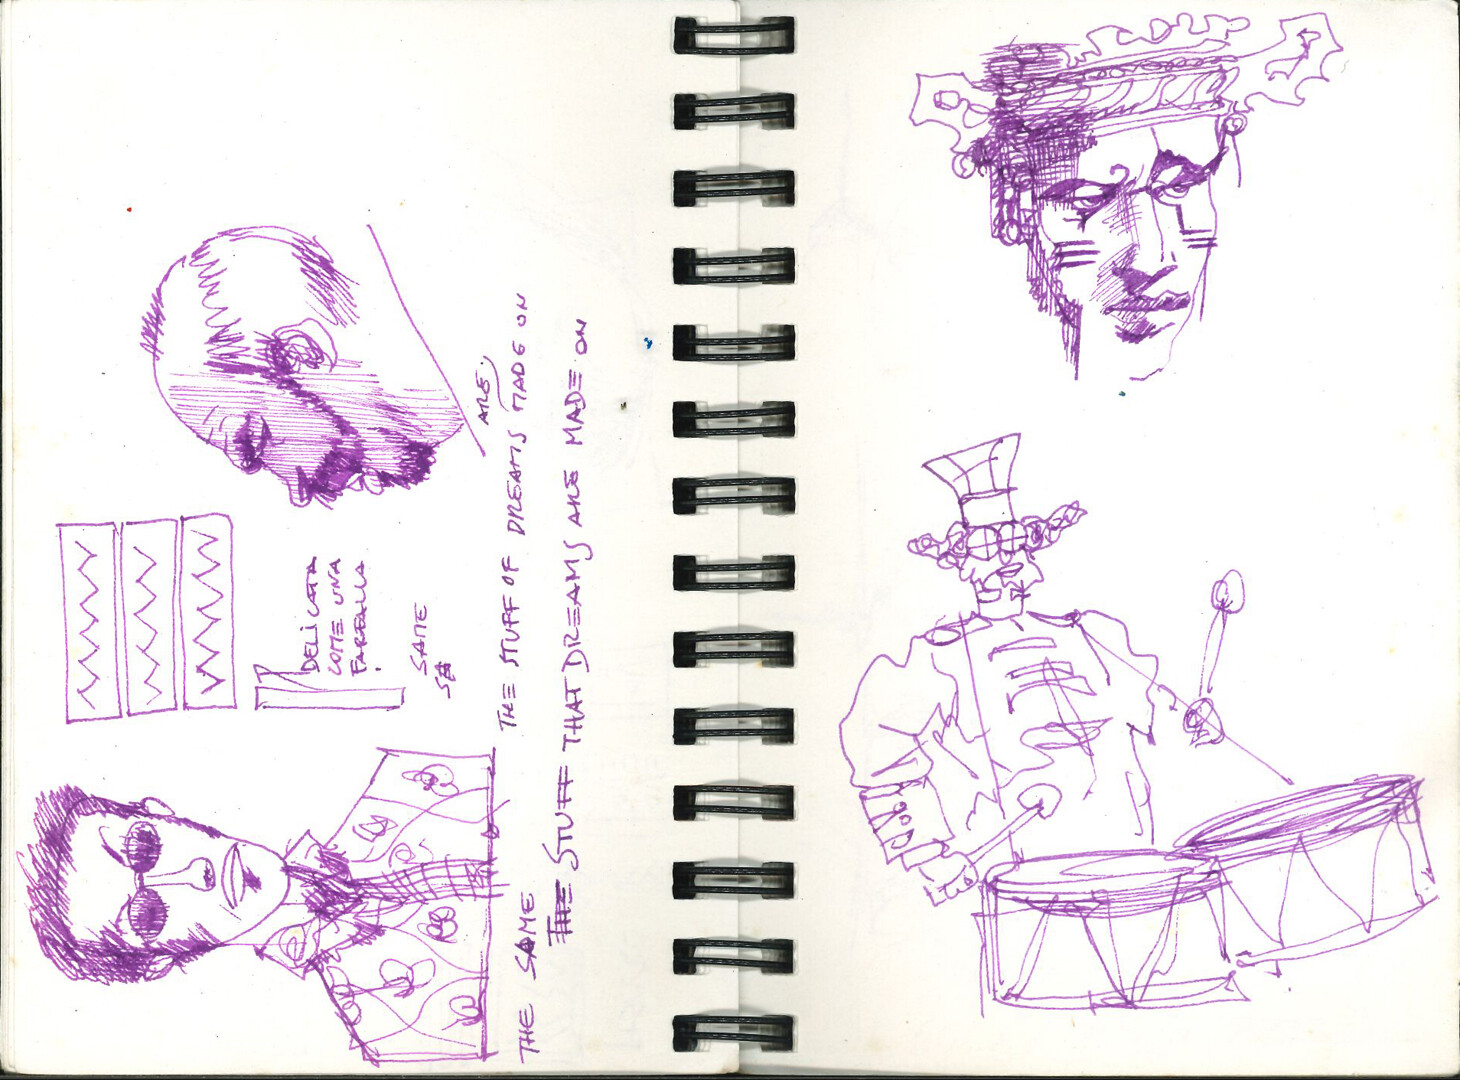 DELICATA
COME UNA
FARFALLA
SAME
ARE
THE STUFF OF DREAMS MADE ON
THE SAME
THE STUFF THAT DREAMS ARE MADE ON